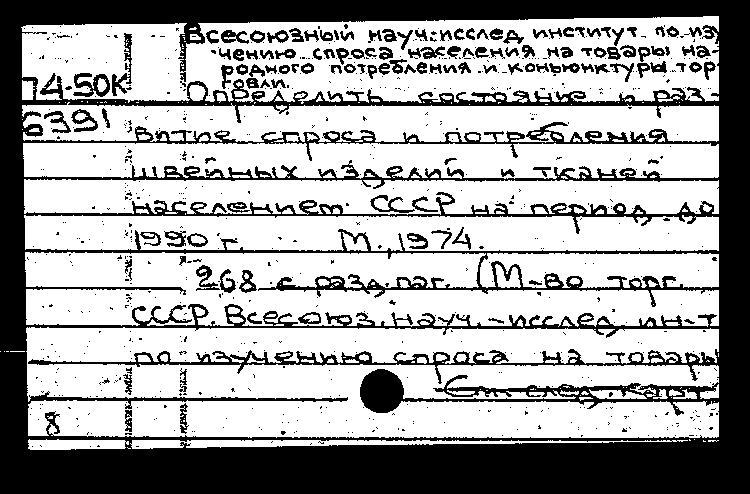 Всесоюзный науч.-исслед. институт по изу
чению спроса населения на товары на-
родного потребления и конъюнктуры тор
говли.
74-50К
Определить состояние и раз-
6391
витие спроса и потребления
швейных изделий и тканей
населением СССР на период до
1990 г. М., 1974.
268 с разд. паг. (М-во торг.
СССР. Всесоюз. науч.-исслед. ин-т
по изучению спроса на товары
См. след. карт.
8